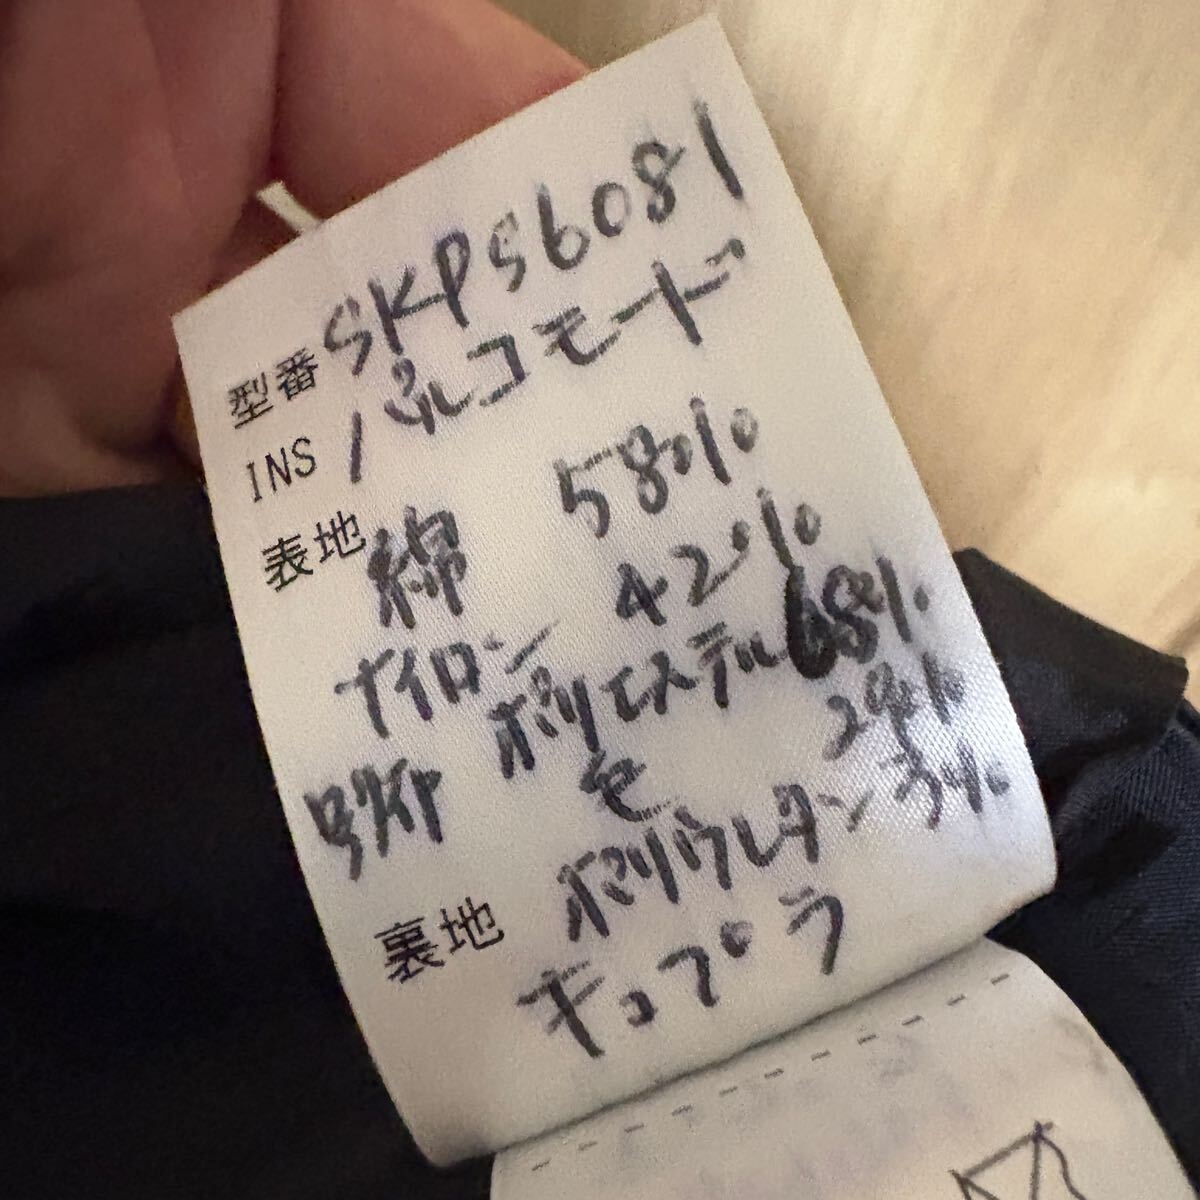 型番 SKPS6081
INS パルコモード
表地 綿 58%
ナイロン 42%
別布 ポリエステル 68%
毛 29%
ポリウレタン 3%
裏地 キュプラ